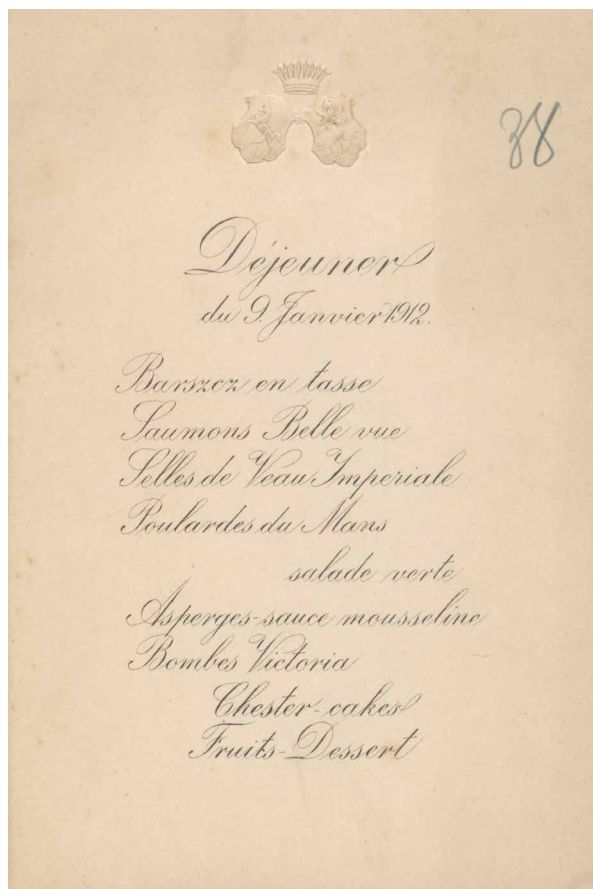 38
Déjeuner
du 9. Janvier 1912.
Barszcz en tasse
Saumons Belle vue
Selles de Veau Imperiale
Poulardes du Mans
salade verte
Asperges-sauce mousseline
Bombes Victoria
Chester-cakes
Fruits-Dessert